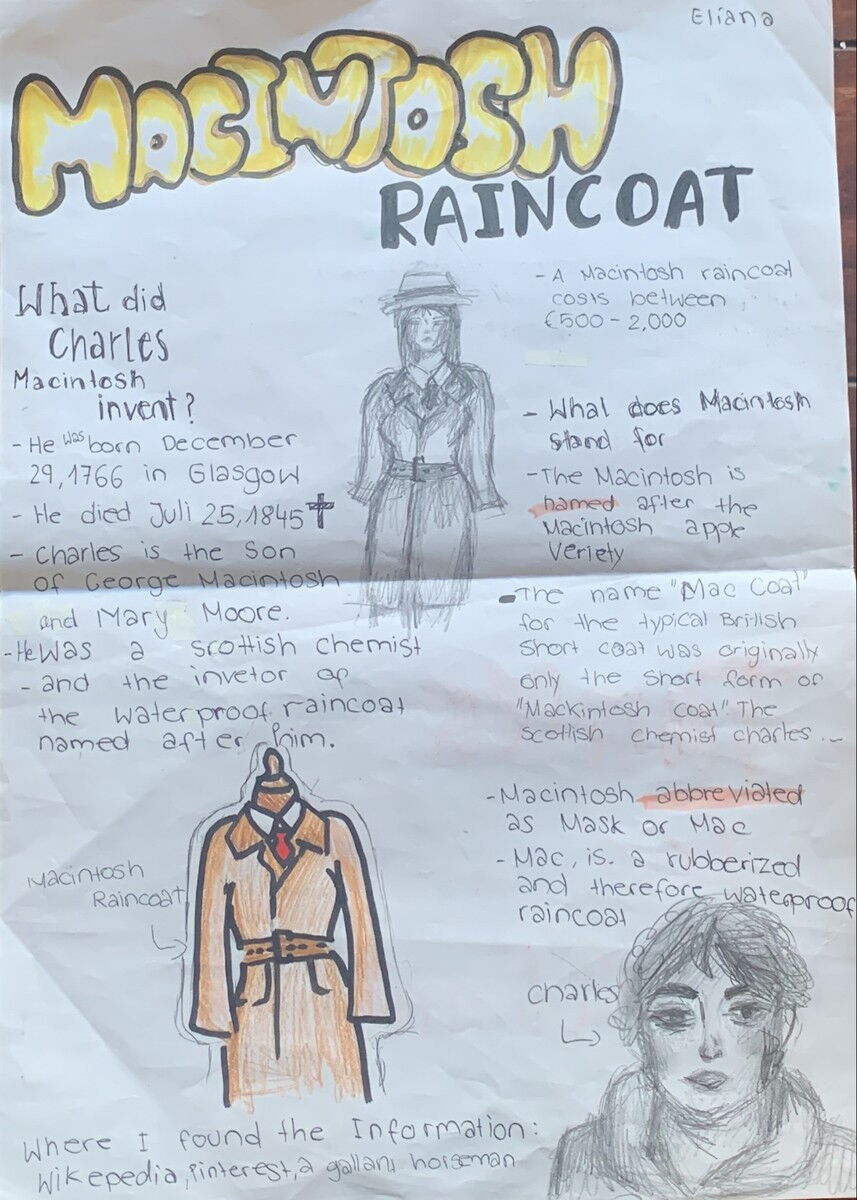 Eliana
MACINTOSH
RAINCOAT
What did
Charles
Macintosh
invent?
- He was born December
29,1766 in Glasgow
- He died Juli 25,1845
- Charles is the Son
of George Macintosh
and Mary Moore.
- He was a scottish chemist
- and the invetor of
the waterproof raincoat
named after him.
- A Macintosh raincoat
costs between
€500 - 2,000
- What does Macintosh
stand for
- The Macintosh is
named after the
Macintosh apple
Veriety
- The name "Mac Coat"
for the typical British
short coat was originally
only the short form of
"Mackintosh coat". The
scottish chemist charles...
- Macintosh abbreviated
as Mask or Mac
- Mac, is a rubberized
and therefore waterproof
raincoat
Macintosh
Raincoat
Charles
Where I found the Information:
Wikepedia, Pinterest, a gallant horseman